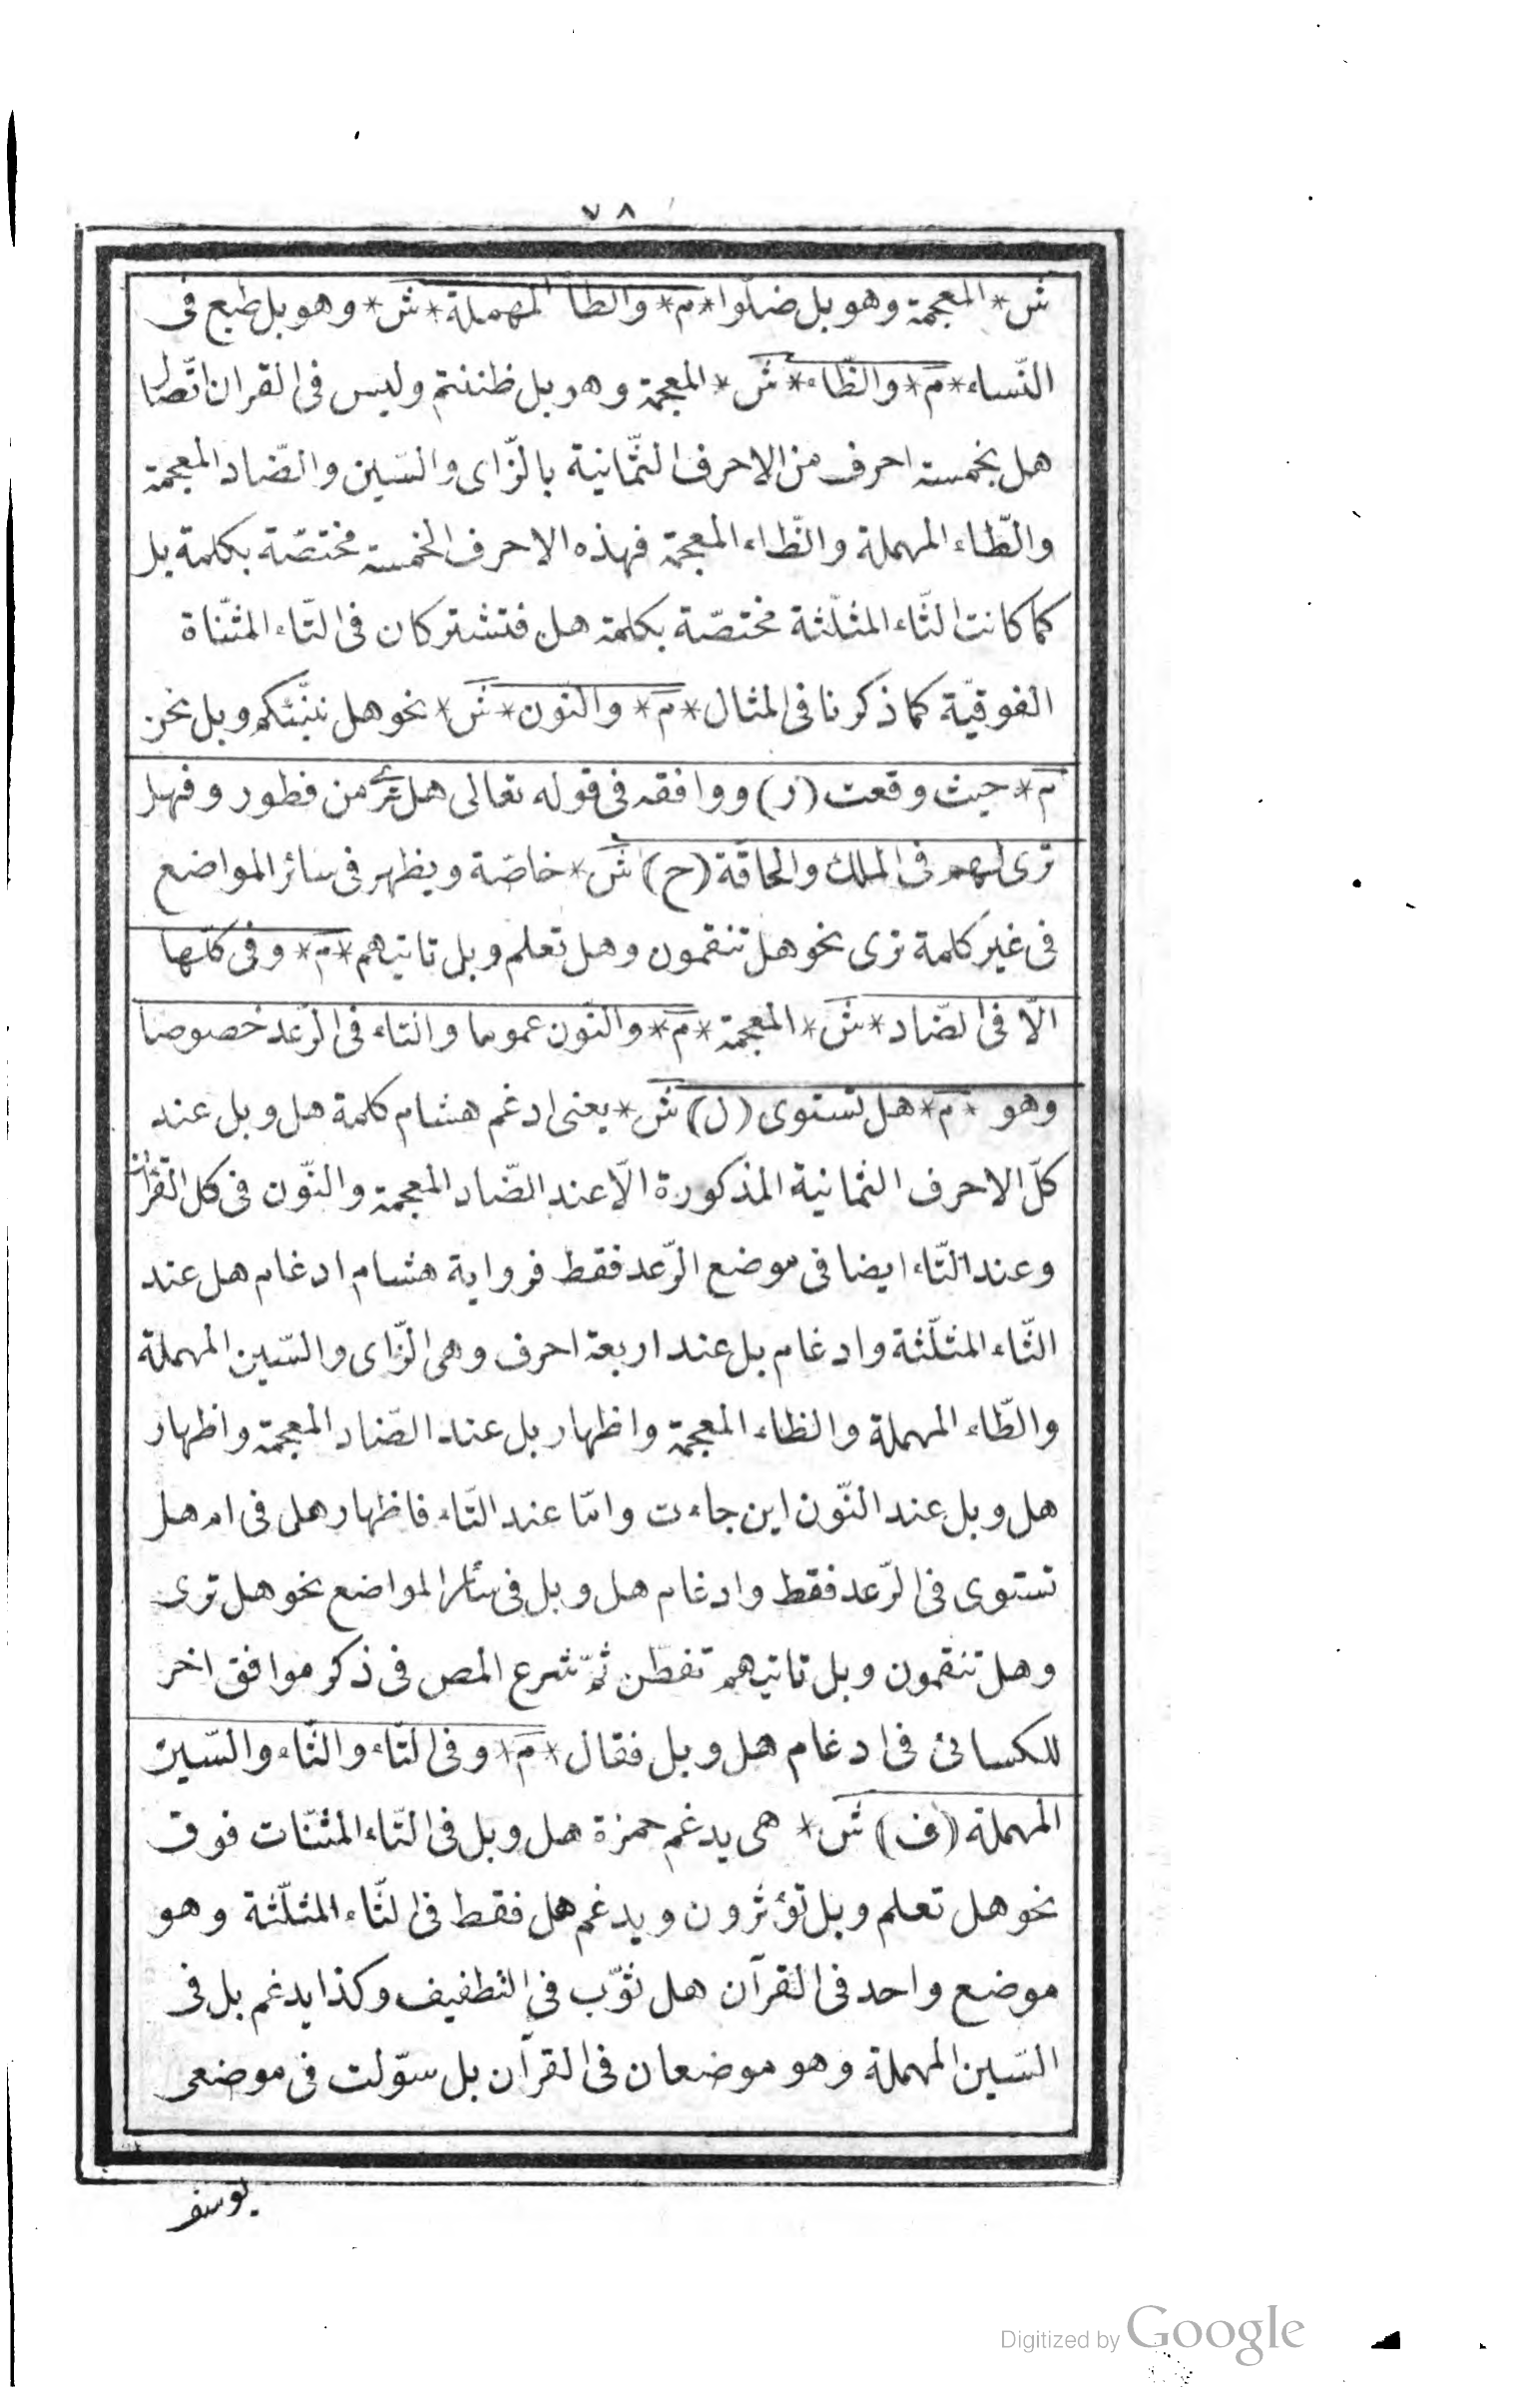 ٧٨
ش * المعجمة وهو بل ضلّوا * م * والطا المهملة * ش * وهو بل طبع فى
النّساء * م * والظّاء * ش * المعجمة وهو بل ظننتم وليس فى القران اتّصال
هل بخمسة احرف من الاحرف الثّمانية بالزّاى والسّين والضّاد المعجمة
والطّاء المهملة والظّاء المعجمة فهذه الاحرف الخمسة مختصّة بكلمة بل
كما كانت الثّاء المثلّثة مختصّة بكلمة هل فتشتركان فى التّاء المثنّاة
الفوقيّة كما ذكرنا فى المثال * م * والنّون * ش * نحو هل ننبّئكم وبل نحن
م * حيث وقعت (ر) ووافقه فى قوله تعالى هل ترى من فطور وفهل
ترى لهم فى الملك والحاقّة (ح) ش * خاصّة ويظهر فى سائر المواضع
فى غير كلمة ترى نحو هل تنقمون وهل تعلم وبل تاتيهم * م * وفى كلّها
الّا فى الضّاد * ش * المعجمة * م * والنّون عموما والتاء فى الرّعد خصوصا
وهو * م * هل تستوى (ل) ش * يعنى ادغم هشام كلمة هل وبل عند
كلّ الاحرف الثمانية المذكورة الّا عند الضّاد المعجمة والنّون فى كل القرآن
وعند التّاء ايضا فى موضع الرّعد فقط فرواية هشام ادغام هل عند
الثّاء المثلّثة وادغام بل عند اربعة احرف وهى الزّاى والسّين المهملة
والطّاء المهملة والظاء المعجمة واظهار بل عند الضّاد المعجمة واظهار
هل وبل عند النّون اين جاءت وامّا عند التّاء فاظهار هل فى ام هل
تستوى فى الرّعد فقط وادغام هل وبل فى سائر المواضع نحو هل ترى
وهل تنقمون وبل تاتيهم تفطّن ثمّ شرع المص فى ذكر موافق اخر
للكسائى فى ادغام هل وبل فقال * م * وفى التّاء والثّاء والسّين
المهملة (ف) ش * هى يدغم حمزة هل وبل فى التّاء المثنّات فوق
نحو هل تعلم وبل تؤثرون ويدغم هل فقط فى الثّاء المثلّثة وهو
موضع واحد فى القرآن هل ثوّب فى التطفيف وكذا يدغم بل فى
السّين المهملة وهو موضعان فى القرآن بل سوّلت فى موضعى
يوسف
Digitized by Google